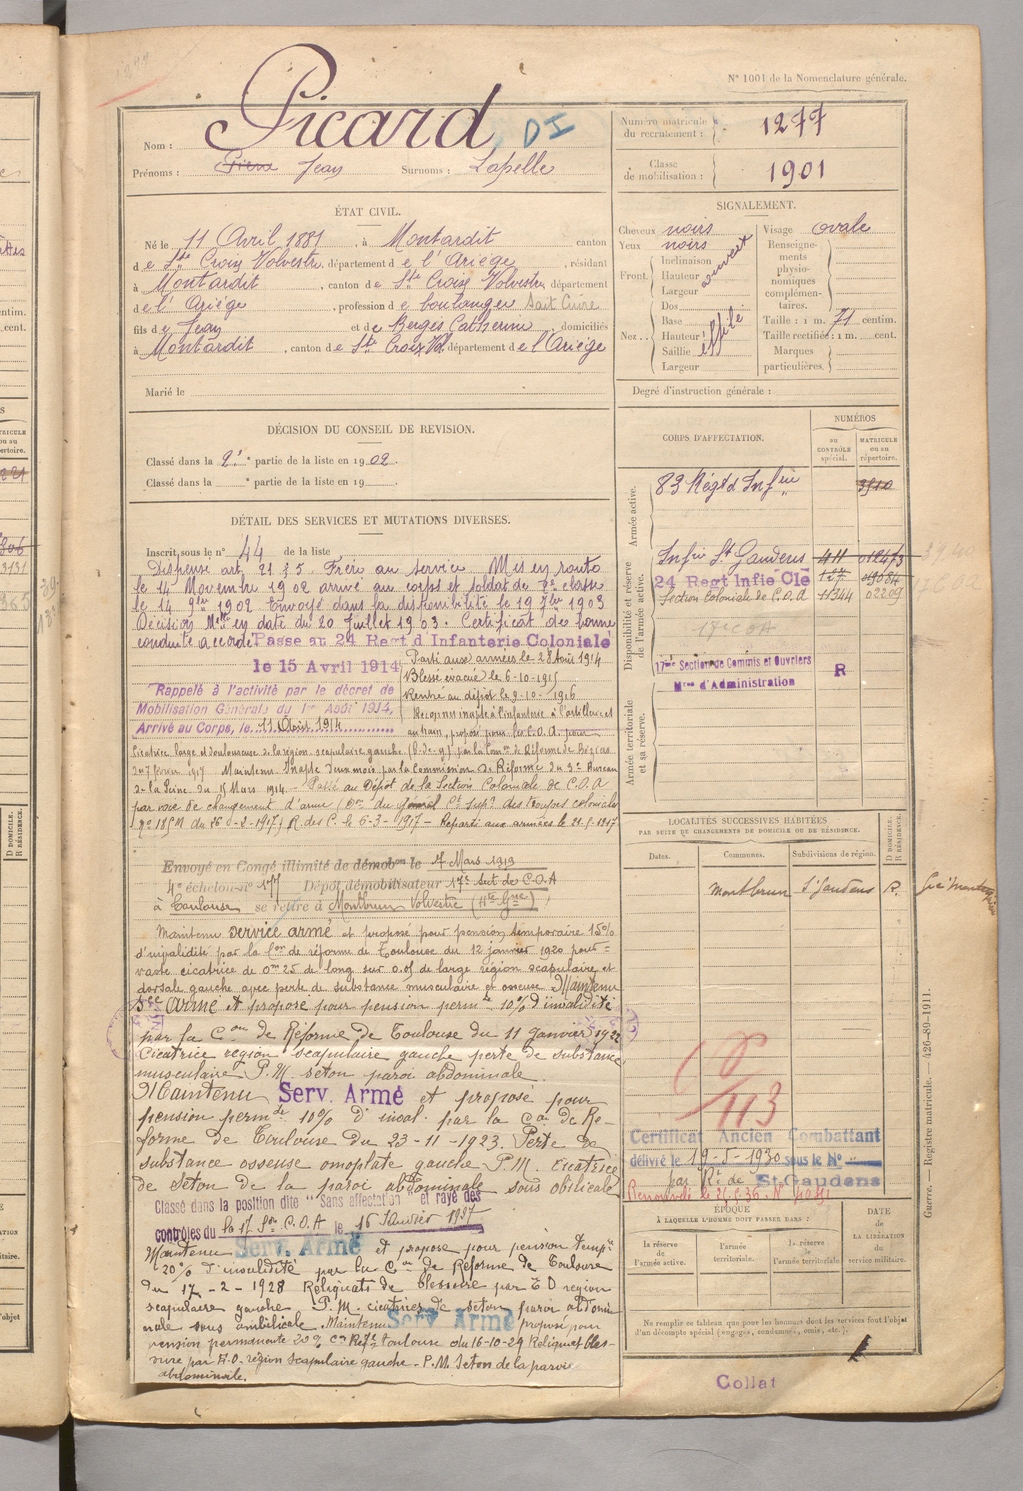 N° 1001 de la Nomenclature générale.
Nom : Picard DI
Prénoms : Pierre Jean Surnoms : Lapelle
Numéro matricule du recrutement : 1277
Classe de mobilisation : 1901
ÉTAT CIVIL.
Né le 11 Avril 1881, à Montardit canton
de Ste Croix Volvestre, département de l'Ariège, résidant
à Montardit, canton de Ste Croix Volvestre, département
de l'Ariège, profession de boulanger Sait Cuire
fils de Jean et de Berges Catherine, domiciliés
à Montardit, canton de Ste Croix Vol. département de l'Ariège
Marié le
SIGNALEMENT.
Cheveux noirs
Yeux noirs
Front. Inclinaison
Hauteur ouvert
Largeur
Nez. Dos
Base
Hauteur effilé
Saillie
Largeur
Visage ovale
Renseignements physionomiques complémentaires.
Taille : 1 m. 71 centim.
Taille rectifiée : 1 m. cent.
Marques particulières.
Degré d'instruction générale :
DÉCISION DU CONSEIL DE REVISION.
Classé dans la 2e partie de la liste en 1902.
Classé dans la e partie de la liste en 19
DÉTAIL DES SERVICES ET MUTATIONS DIVERSES.
Inscrit sous le n° 44 de la liste
Dispensé art. 21 § 5. Frère au service. Mis en route
le 14 Novembre 1902 arrivé au corps et soldat de 2e classe
le 14 9bre 1902 Envoyé dans la disponibilité le 19 7bre 1903
Décision Melle en date du 20 Juillet 1903. Certificat de bonne
conduite accordé Passé au 24 Regt d'Infanterie Coloniale
le 15 Avril 1914
Parti aux armées le 28 Août 1914
Blessé évacué le 6-10-1915
Rentré au dépôt le 9-10-1916
Rappelé à l'activité par le décret de
Mobilisation Générale du 1er Août 1914,
Arrivé au Corps, le 11 Août 1914
Reconnu inapte à l'infanterie à l'artillerie et
au train, proposé pour les C.O.A. pour
Cicatrice large et douloureuse de la région scapulaire gauche (B. de g.) par la Comon de Réforme de Béziers
du 7 février 1917 Maintenu Inapte deux mois par la Commission de Réforme du 3e Bureau
de la Seine du 15 Mars 1914. Passé au Dépôt de la Section Coloniale de C.O.A
par voie de changement d'arme (Don du Général Ct Supr des troupes coloniales
no 185M du 26-2-1917) R. des C. le 6-3-1917 - Reparti aux armées le 21-5-1917
Envoyé en Congé illimité de démobon le 17 Mars 1919
4e échelon n° 177 Dépôt démobilisateur 17e Sect de C.O.A
à Toulouse se retire à Montbrun Volvestre (Hte Gne)
Maintenu service armé et proposé pour pension temporaire 15%
d'invalidité par la Con de réforme de Toulouse du 12 janvier 1920 pour
vaste cicatrice de 0m25 de long sur 0.05 de large région scapulaire et
dorsale gauche avec perte de substance musculaire et osseuse Maintenu
Sce Armé et proposé pour pension permte 10% d'invalidité
par la Con de Réforme de Toulouse du 11 janvier 1922
Cicatrice région scapulaire gauche perte de substance
musculaire P.M. séton paroi abdominale.
Maintenu Serv. Armé et proposé pour
pension permte 10% d'inval. par la Con de Ré-
forme de Toulouse du 23-11-1923. Perte de
substance osseuse omoplate gauche P.M. cicatrice
de séton de la paroi abdominale sous obilicale
Classé dans la position dite "Sans affectation" et rayé des
contrôles du la 17 Son C.O.A le 16 Janvier 1927
Maintenu Serv. Armé et proposé pour pension tempre
20% d'invalidité par la Con de Réforme de Toulouse
du 17-2-1928 Reliquats de blessure par E O région
scapulaire gauche P.M. cicatrices de séton paroi abdomi
nale sous ombilicale Maintenu Serv Armé proposé pour
pension permanente 20% Con Refe Toulouse du 16-10-29 Reliquat bles-
sure par E.O. région scapulaire gauche - P.M. Séton de la paroi
abdominale.
CORPS D'AFFECTATION.
NUMÉROS
AU CONTRÔLE spécial.
MATRICULE ou au répertoire.
Armée active.
83 Régt d'Infrie 3910
Disponibilité et réserve de l'armée active.
Infie St Gaudens 411 012473
24 Regt Infie Cle 127 09084
Section Coloniale de C.O.A 11344 02209
17e COA
Armée territoriale et sa réserve.
17me Section de Commis et Ouvriers R
Mres d'Administration
LOCALITÉS SUCCESSIVES HABITÉES
PAR SUITE DE CHANGEMENTS DE DOMICILE OU DE RÉSIDENCE.
Dates. Communes. Subdivisions de région. D DOMICILE. R RÉSIDENCE.
Montbrun St Gaudens R.
113
Certificat Ancien Combattant
délivré le 19-5-1930 sous le N°
par Rt de St Gaudens
ÉPOQUE
À LAQUELLE L'HOMME DOIT PASSER DANS :
la réserve de l'armée active.
l'armée territoriale.
la réserve de l'armée territoriale.
DATE de LA LIBÉRATION du service militaire.
Ne remplir ce tableau que pour les hommes dont les services font l'objet
d'un décompte spécial (engagés, condamnés, omis, etc.).
Guerre. — Registre matricule. — 426-89-1911.
Collat